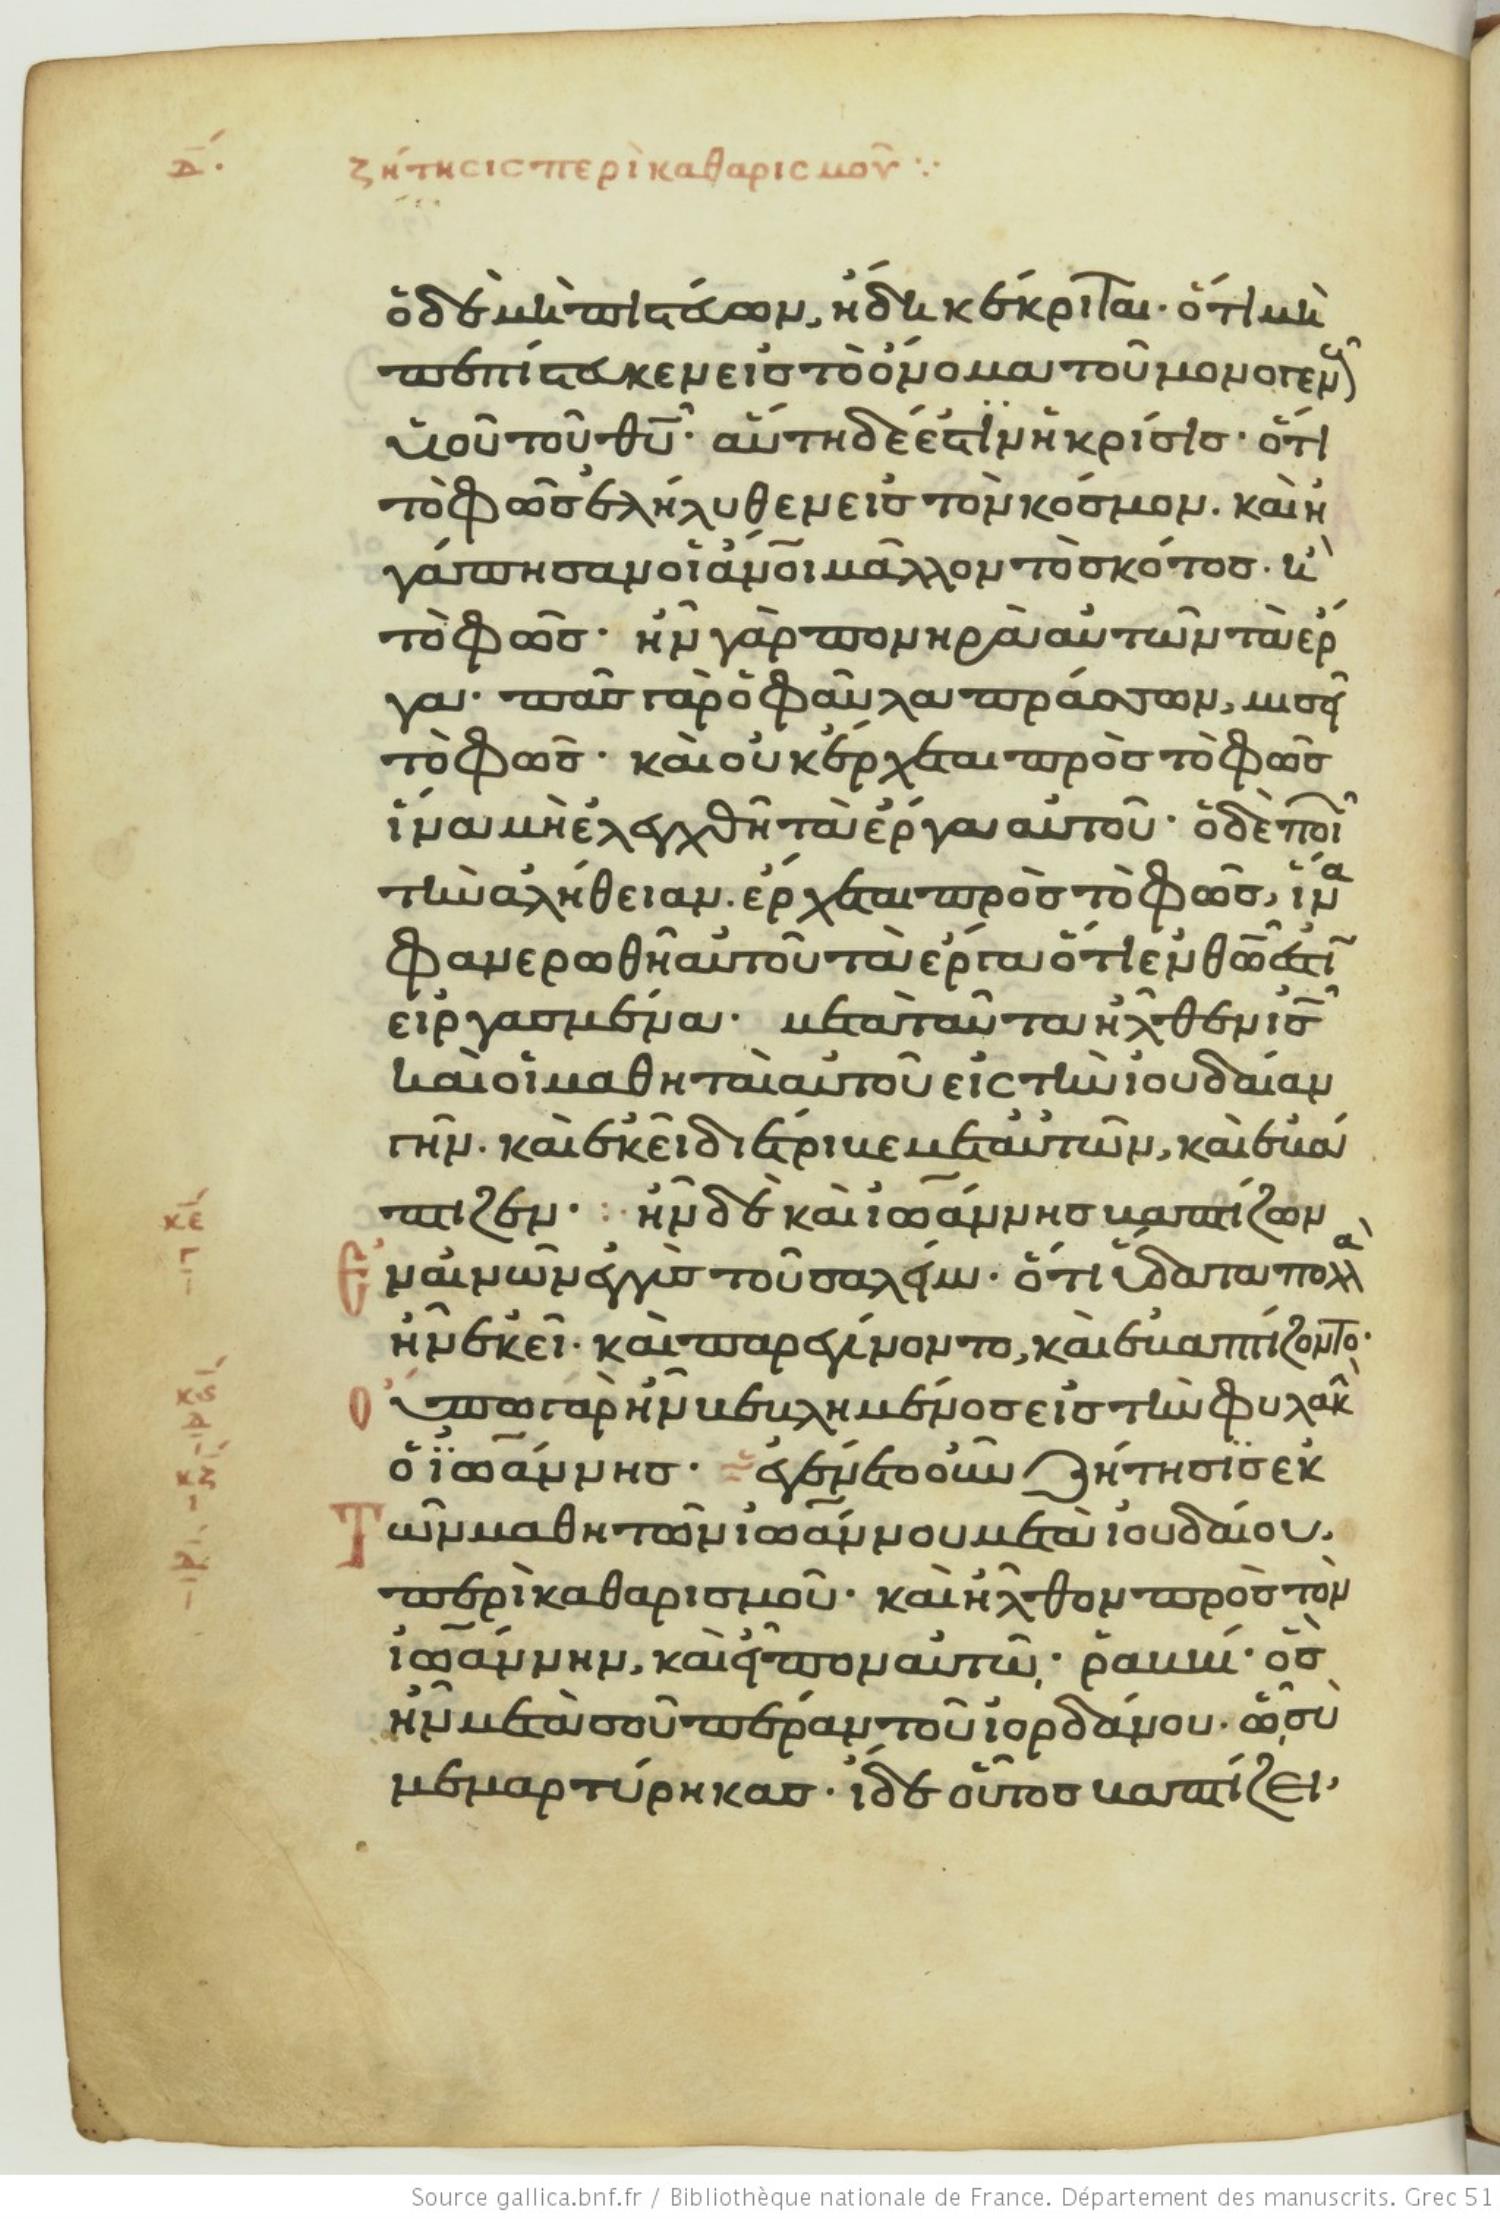 δ. ζήτησις περὶ καθαρισμοῦ
ὁ δὲ μὴ πιστεύων, ἤδη κέκριται· ὅτι μὴ
πεπίστευκεν εἰς τὸ ὄνομα τοῦ μονογεν
υἱοῦ τοῦ θυ· αὕτη δέ ἐστὶν ἡ κρίσις· ὅτι
τὸ φῶς ἐλήλυθεν εἰς τὸν κόσμον. καὶ ἠ
γάπησαν οἱ ἄνοι μᾶλλον τὸ σκότος· ἢ
τὸ φῶς· ἦν γὰρ πονηρὰ αὐτῶν τὰ ἔρ
γα· πᾶς γὰρ ὁ φαῦλα πράσσων, μισεῖ
τὸ φῶς· καὶ οὐκ έρχεται πρὸς τὸ φῶς
ἵνα μὴ ἐλεγχθῆ τὰ ἔργα αὐτοῦ· ὁ δὲ ποι
τὴν ἀλήθειαν. ἔρχεται πρὸς τὸ φῶς, ἵνα
φανερωθῆ αὐτοῦ τὰ ἔργα ὅτι ἐν θῶ ἐστι
εἰργασμένα· μετὰ ταῦτα ἦλθεν ις
καὶ οἱ μαθηταὶ αὐτοῦ εἰς τὴν ἰουδαίαν
γῆν. καὶ ἐκεῖ διέτριβε μετ αὐτῶν, καὶ ἐβά
πτιζεν· ἦν δὲ καὶ ἰωάννης βαπτίζων
κε γ Ἐν αἰνὼν ἐγγὺς τοῦ σαλείμ· ὅτι ὕδατα πολλὰ
ἦν ἐκεῖ· καὶ παρεγίνοντο, καὶ ἐβαπτίζοντο·
κς δ Οὔπω γὰρ ἦν βεβλημένος εἰς τὴν φυλακ
ὁ ἰωάννης· ἐγένετο οὖν ζήτησις ἐκ
κζ ι Τῶν μαθητῶν ἰωάννου μετὰ ἰουδαίου.
περὶ καθαρισμοῦ· καὶ ἦλθον πρὸς τὸν
ἰωάννην, καὶ εἶπον αὐτῶ· ῥαββί· ὃς
ἦν μετὰ σοῦ πέραν τοῦ ἰορδάνου. ὧ σὺ
μεμαρτύρηκας· ἴδε οὗτος βαπτίζει·
Source gallica.bnf.fr / Bibliothèque nationale de France. Département des manuscrits. Grec 51